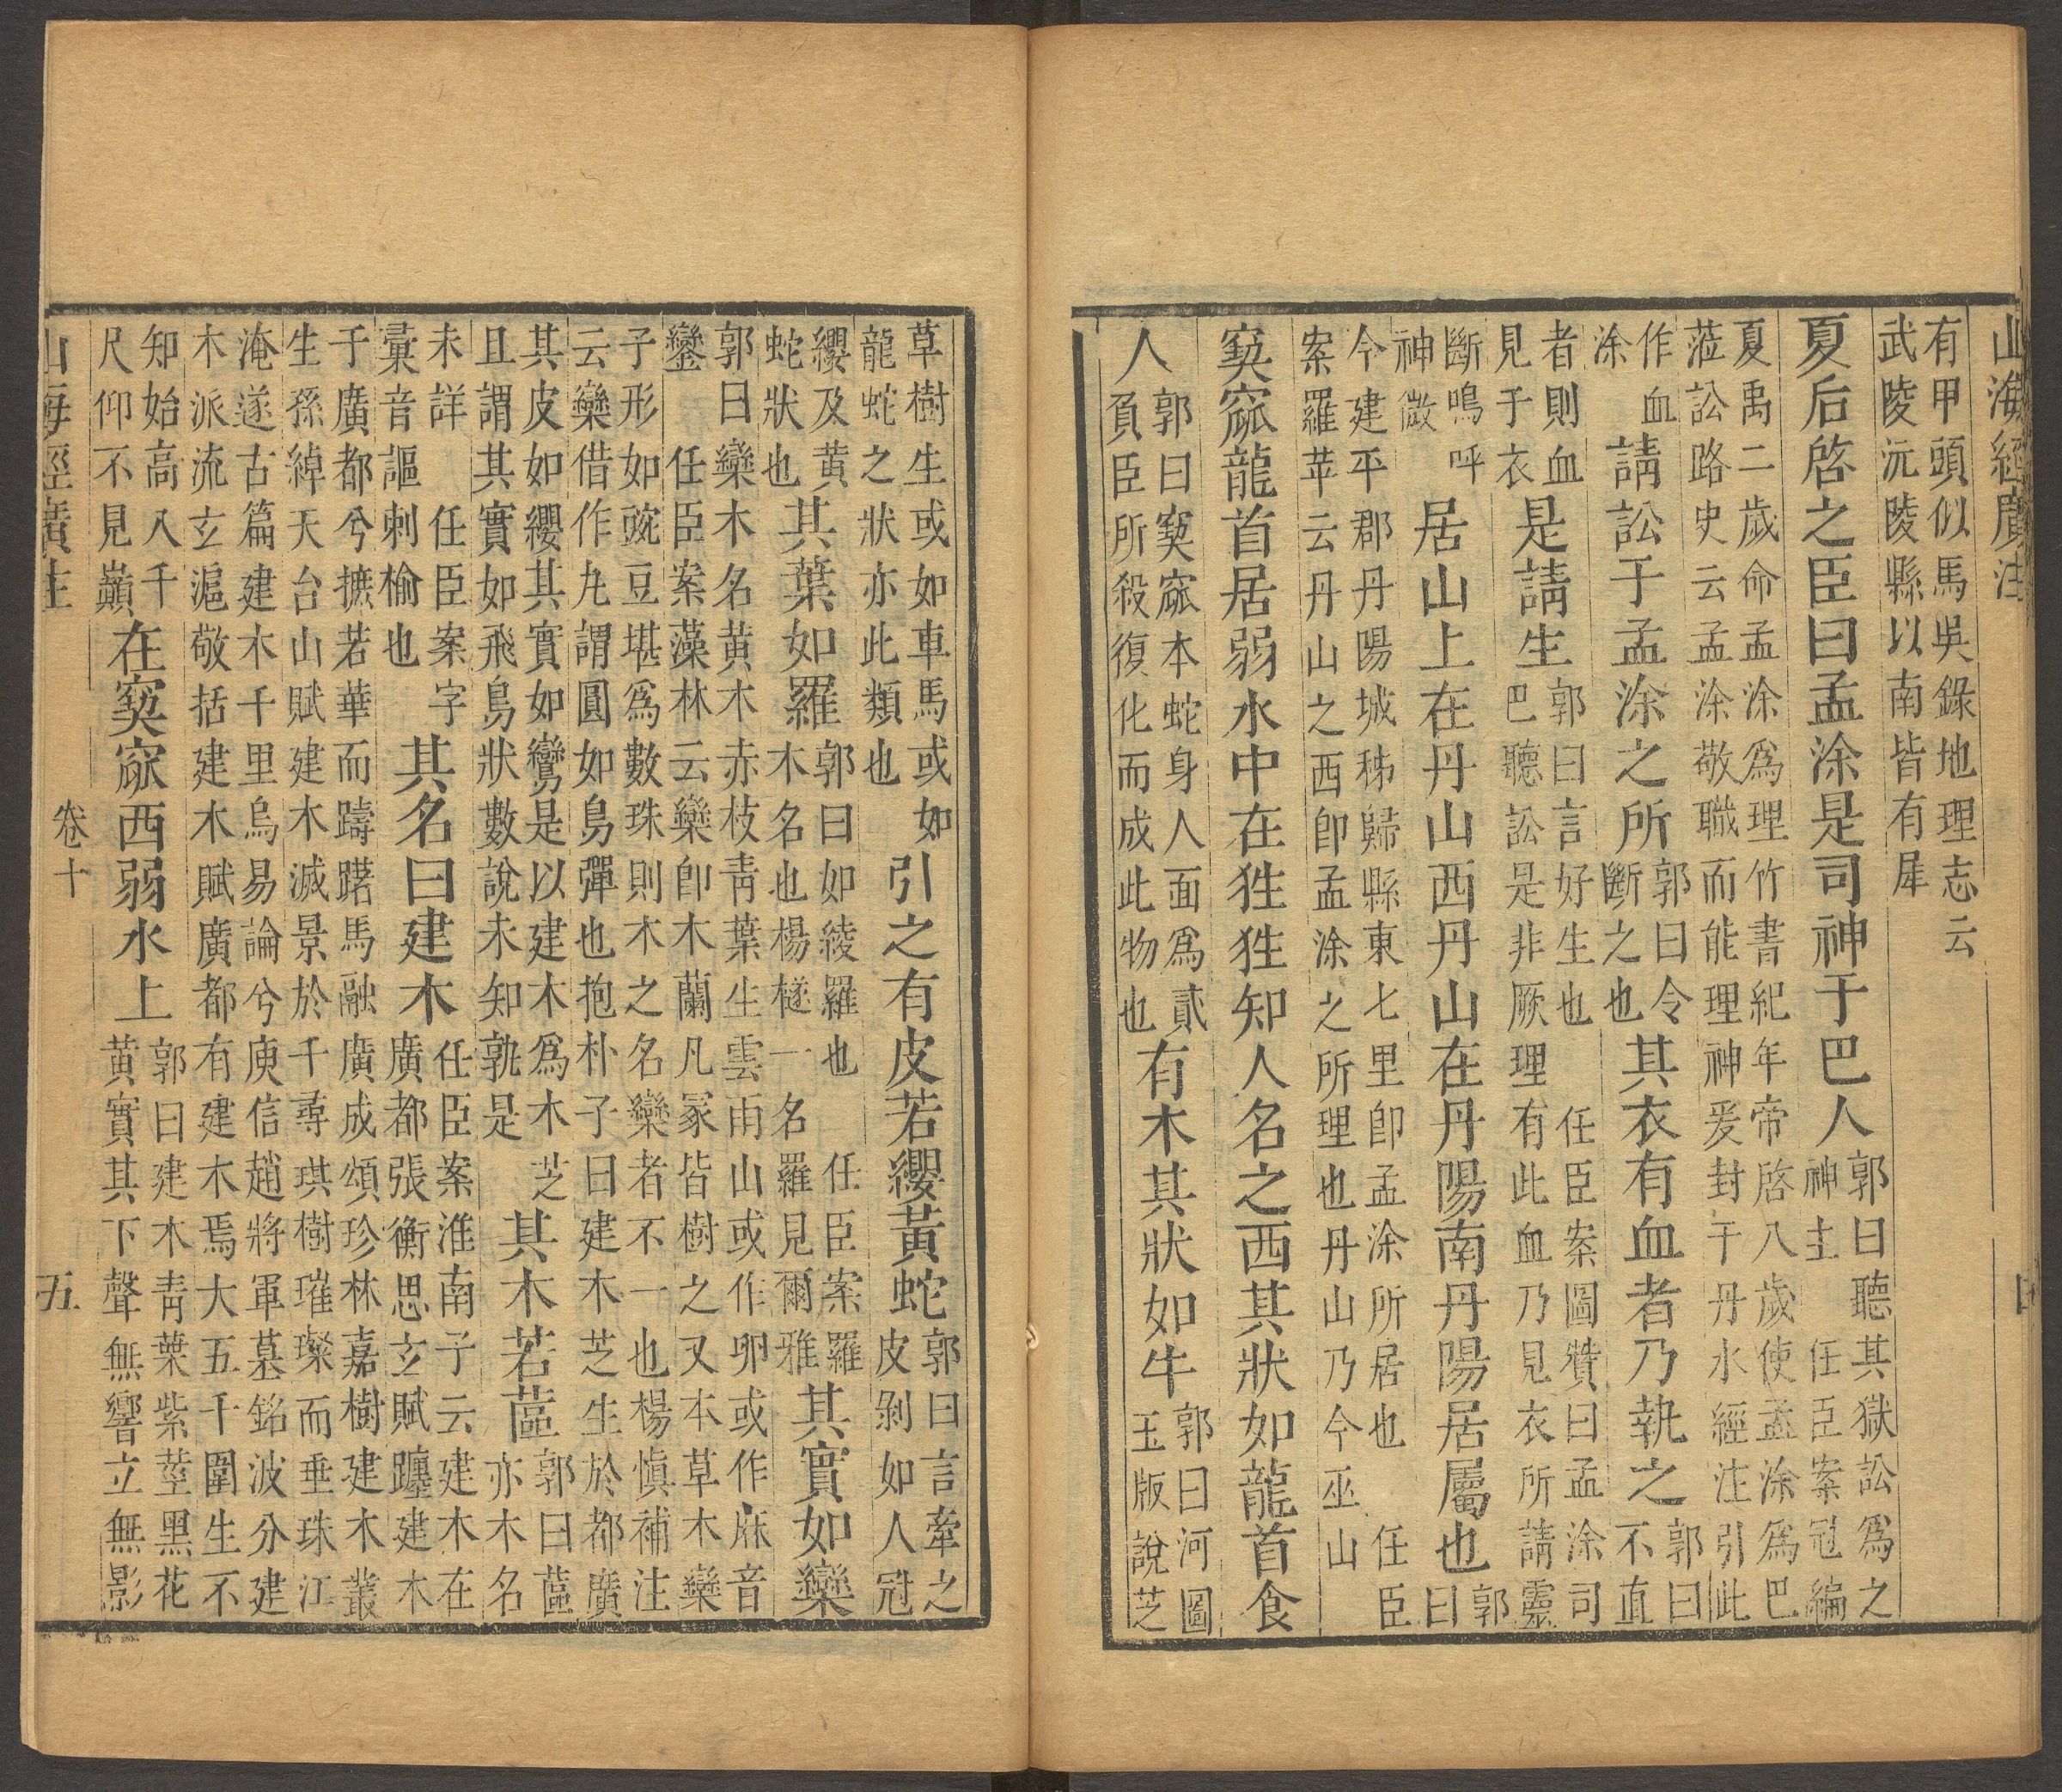 山海經廣注
有甲頭似馬吳錄地理志云
武陵沅陵縣以南皆有犀
夏后啓之臣曰孟涂是司神于巴人郭曰聽其獄訟爲之神主 任臣案冠編
夏禹二歲命孟涂爲理竹書紀年帝啓八歲使孟涂爲巴
蒞訟路史云孟涂敬職而能理神爰封于丹水經注引此
作血涂請訟于孟涂之所郭曰令斷之也其衣有血者乃執之郭曰不直
者則血見于衣是請生郭曰言好生也 任臣案圖贊曰孟涂司巴聽訟是非厥理有此血乃見衣所請靈
斷鳴呼神微居山上在丹山西丹山在丹陽南丹陽居屬也郭曰
今建平郡丹陽城秭歸縣東七里卽孟涂所居也 任臣
案羅苹云丹山之西卽孟涂之所理也丹山乃今巫山
窫窳龍首居弱水中在狌狌知人名之西其狀如龍首食
人郭曰窫窳本蛇身人面爲貳負臣所殺復化而成此物也有木其狀如牛郭曰河圖玉版說芝
草樹生或如車馬或如龍蛇之狀亦此類也引之有皮若纓黃蛇郭曰言牽之皮剝如人冠
纓及黃蛇狀也其葉如羅郭曰如綾羅也 任臣案羅木名也楊檖一名羅見爾雅其實如欒
郭曰欒木名黃木赤枝青葉生雲雨山或作卵或作麻音
鑾 任臣案藻林云欒卽木蘭凡冢皆樹之又本草木欒
子形如豌豆堪爲數珠則木之名欒者不一也楊慎補注
云欒借作丸謂圓如鳥彈也抱朴子曰建木芝生於都廣
其皮如纓其實如鸞是以建木爲木芝且謂其實如飛鳥狀數說未知孰是其木若蓲郭曰蓲亦木名
未詳 任臣案字彙音謳刺榆也其名曰建木任臣案淮南子云建木在廣都張衡思玄賦躔建木
于廣都兮摭若華而躊躇馬融廣成頌珍林嘉樹建木叢
生孫綽天台山賦建木滅景於千尋琪樹璀璨而垂珠江
淹遂古篇建木千里烏易論兮庾信趙將軍墓銘波分建
木派流玄滬敬括建木賦廣都有建木焉大五千圍生不
知始高八千尺仰不見巔在窫窳西弱水上郭曰建木青葉紫莖黑花黃實其下聲無響立無影
山海經廣注 卷十 五